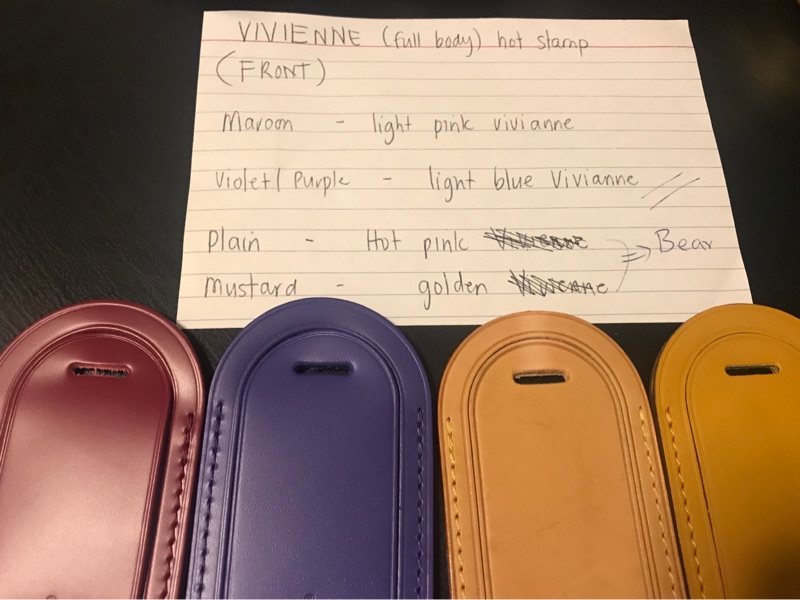 VIVIENNE (full body) hot stamp
(FRONT)
Maroon - light pink vivianne
Violet/Purple - light blue Vivianne //
Plain - Hot pink
Mustard - golden
⇒ Bear